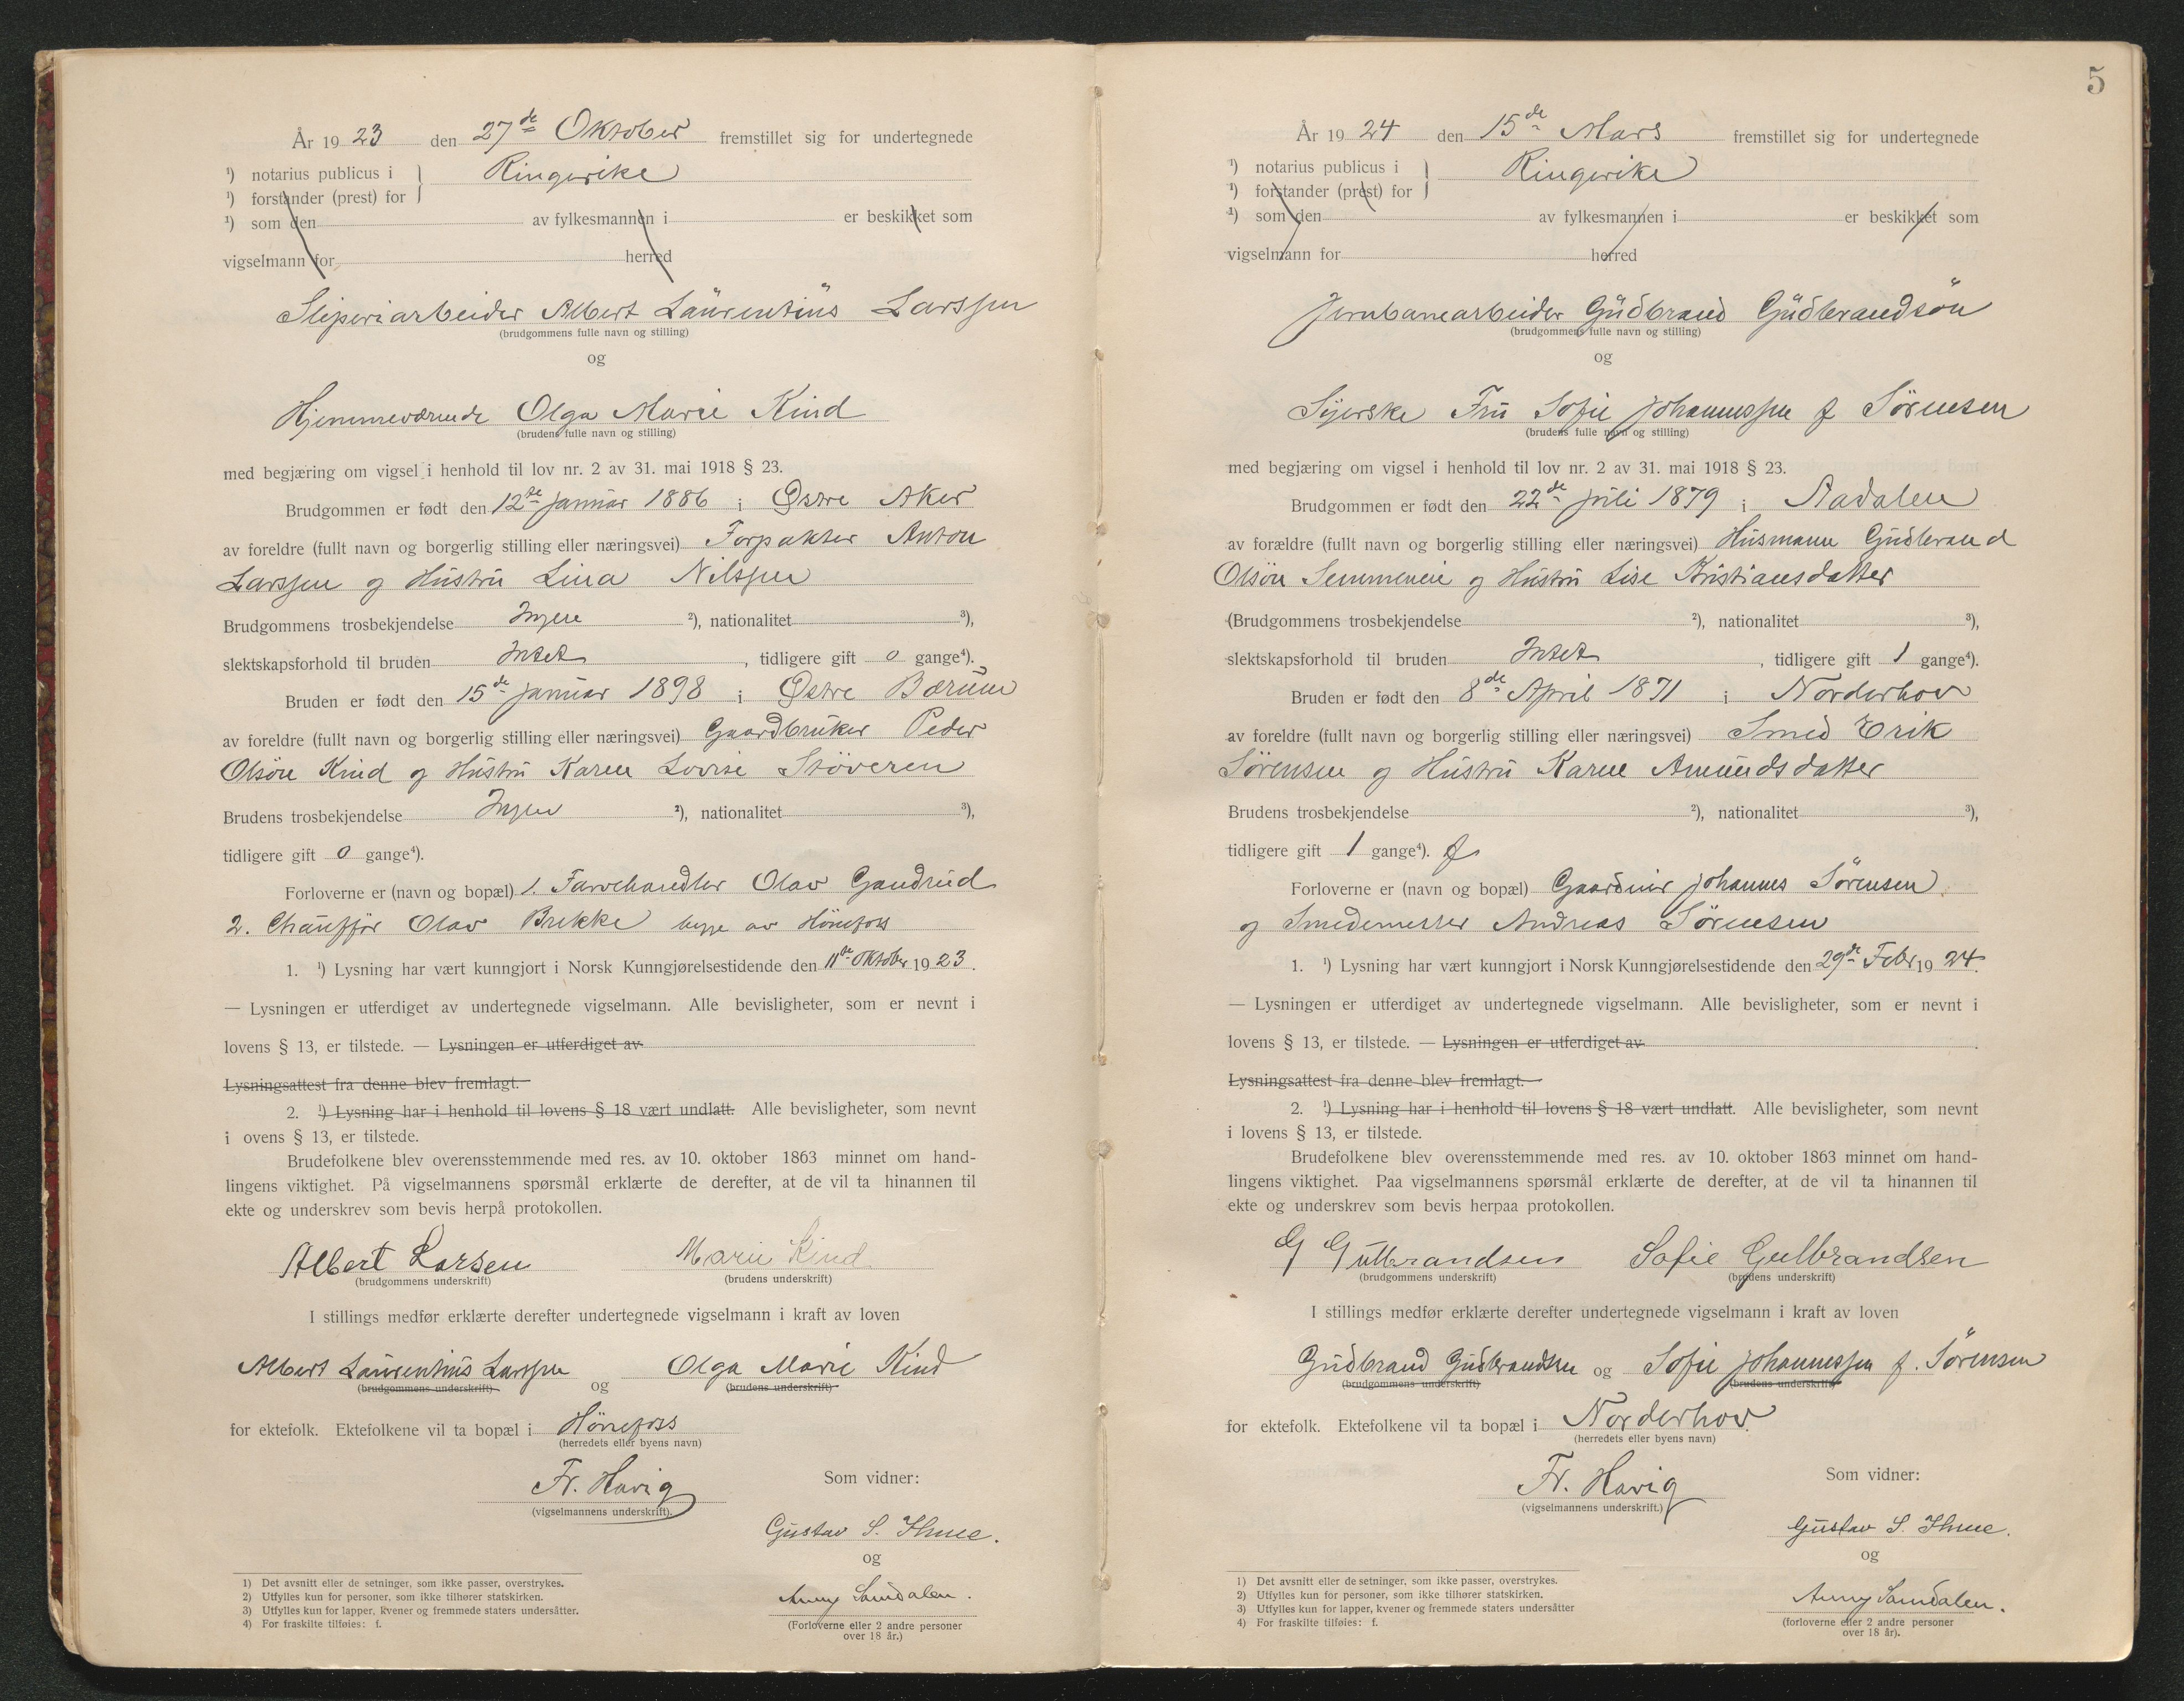 År 1923 den 27de Oktober fremstillet sig for undertegnede
¹) notarius publicus i } Ringerike
¹) forstander (prest) for
¹) som den av fylkesmannen i er beskikket som
vigselmann for herred
Sliperiarbeider Albert Laurentius Larssen
(brudgommens fulle navn og stilling)
og
Hjemmeværende Olga Marie Kind
(brudens fulle navn og stilling)
med begjæring om vigsel i henhold til lov nr. 2 av 31. mai 1918 § 23.
Brudgommen er født den 12te januar 1886 i Østre Aker
av foreldre (fullt navn og borgerlig stilling eller næringsvei) Forpakter Anton
Larssen og Hustru Lina Nilssen
Brudgommens trosbekjendelse Ingen ²), nationalitet ³),
slektskapsforhold til bruden Intet, tidligere gift 0 gange⁴).
Bruden er født den 15de januar 1898 i Østre Bærum
av foreldre (fullt navn og borgerlig stilling eller næringsvei) Gaardbruker Peder
Olsøn Kind og Hustru Karen Lovise Støveren
Brudens trosbekjendelse Ingen ²), nationalitet ³),
tidligere gift 0 gange⁴).
Forloverne er (navn og bopæl) 1. Farvehandler Olav Gandrud
2. Chauffør Olav Brekke begge av Hønefoss
1. ¹) Lysning har vært kunngjort i Norsk Kunngjørelsestidende den 11te Oktober 1923.
— Lysningen er utferdiget av undertegnede vigselmann. Alle bevisligheter, som er nevnt i
lovens § 13, er tilstede. — Lysningen er utferdiget av
Lysningsattest fra denne blev fremlagt. —
2. ¹) Lysning har i henhold til lovens § 18 vært undlatt. Alle bevisligheter, som nevnt
i ovens § 13, er tilstede.
Brudefolkene blev overensstemmende med res. av 10. oktober 1863 minnet om hand-
lingens viktighet. På vigselmannens spørsmål erklærte de derefter, at de vil ta hinannen til
ekte og underskrev som bevis herpå protokollen.
Albert Larsen Marie Kind
(brudgommens underskrift) (brudens underskrift)
I stillings medfør erklærte derefter undertegnede vigselmann i kraft av loven
Albert Laurentius Larssen og Olga Marie Kind
(brudgommens underskrift) (brudens underskrift)
for ektefolk. Ektefolkene vil ta bopæl i Hønefoss
(herredets eller byens navn)
Fr. Havig
(vigselmannens underskrift).
Som vidner:
Gustav S. Ihme.
og
Anny Samdalen.
(Forloverne eller 2 andre personer
over 18 år.)
1) Det avsnitt eller de setninger, som ikke passer, overstrykes.
2) Utfylles kun for personer, som ikke tilhører statskirken.
3) Utfylles kun for lapper, kvener og fremmede staters undersåtter.
4) For fraskilte tilføies: f.
5
År 1924 den 15de Mars fremstillet sig for undertegnede
¹) notarius publicus i } Ringerike
¹) forstander (prest) for
¹) som den av fylkesmannen i er beskikket som
vigselmann for herred
Jernbanearbeider Gudbrand Gudbrandsøn
(brudgommens fulle navn og stilling)
og
Syerske Fru Sofie Johannessen f Sørensen
(brudens fulle navn og stilling)
med begjæring om vigsel i henhold til lov nr. 2 av 31. mai 1918 § 23.
Brudgommen er født den 22de juli 1879 i Aadalen
av forældre (fullt navn og borgerlig stilling eller næringsvei) Husmann Gudbrand
Olsøn Semmeneie og Hustru Lise Kristiansdatter
(Brudgommens trosbekjendelse ²), nationalitet ³),
slektskapsforhold til bruden Intet, tidligere gift 1 gange⁴).
Bruden er født den 8de April 1871 i Norderhov
av foreldre (fullt navn og borgerlig stilling eller næringsvei) Smed Erik
Sørensen og Hustru Karne Amundsdatter
Brudens trosbekjendelse ²), nationalitet ³),
tidligere gift 1 gange⁴). f
Forloverne er (navn og bopæl) Gaardeier Johannes Sørensen
og Smedemester Andreas Sørensen
1. ¹) Lysning har vært kunngjort i Norsk Kunngjørelsestidende den 29de Febr 1924.
— Lysningen er utferdiget av undertegnede vigselmann. Alle bevisligheter, som er nevnt i
lovens § 13, er tilstede. — Lysningen er utferdiget av .
Lysningsattest fra denne blev fremlagt. —
2. ¹) Lysning har i henhold til lovens § 18 vært undlatt. Alle bevisligheter, som nevnt
i lovens § 13, er tilstede.
Brudefolkene blev overensstemmende med res. av 10. oktober 1863 minnet om hand-
lingens viktighet. Paa vigselmannens spørsmål erklærte de derefter, at de vil ta hinannen til
ekte og underskrev som bevis herpaa protokollen.
G Gulbrandsen Sofie Gulbrandsen
(brudgommens underskrift) (brudens underskrift)
I stillings medfør erklærte derefter undertegnede vigselmann i kraft av loven
Gudbrand Gudbrandsen og Sofie Johannessen f. Sørensen
(brudgommens underskrift) (brudens underskrift)
for ektefolk. Ektefolkene vil ta bopæl i Norderhov.
(herredets eller byens navn)
Fr. Havig
(vigselmannens underskrift.)
Som vidner:
Gustav S. Ihme.
og
Anny Samdalen.
(forloverne eller 2 andre personer
over 18 år).
1) Det avsnitt eller de setninger, som ikke passer, overstrykes.
2) Utfylles kun for personer, som ikke tilhører statskirken.
3) Utfylles kun for lapper, kvener og fremmede staters undersåtter
4) For fraskilte tilføies: f.